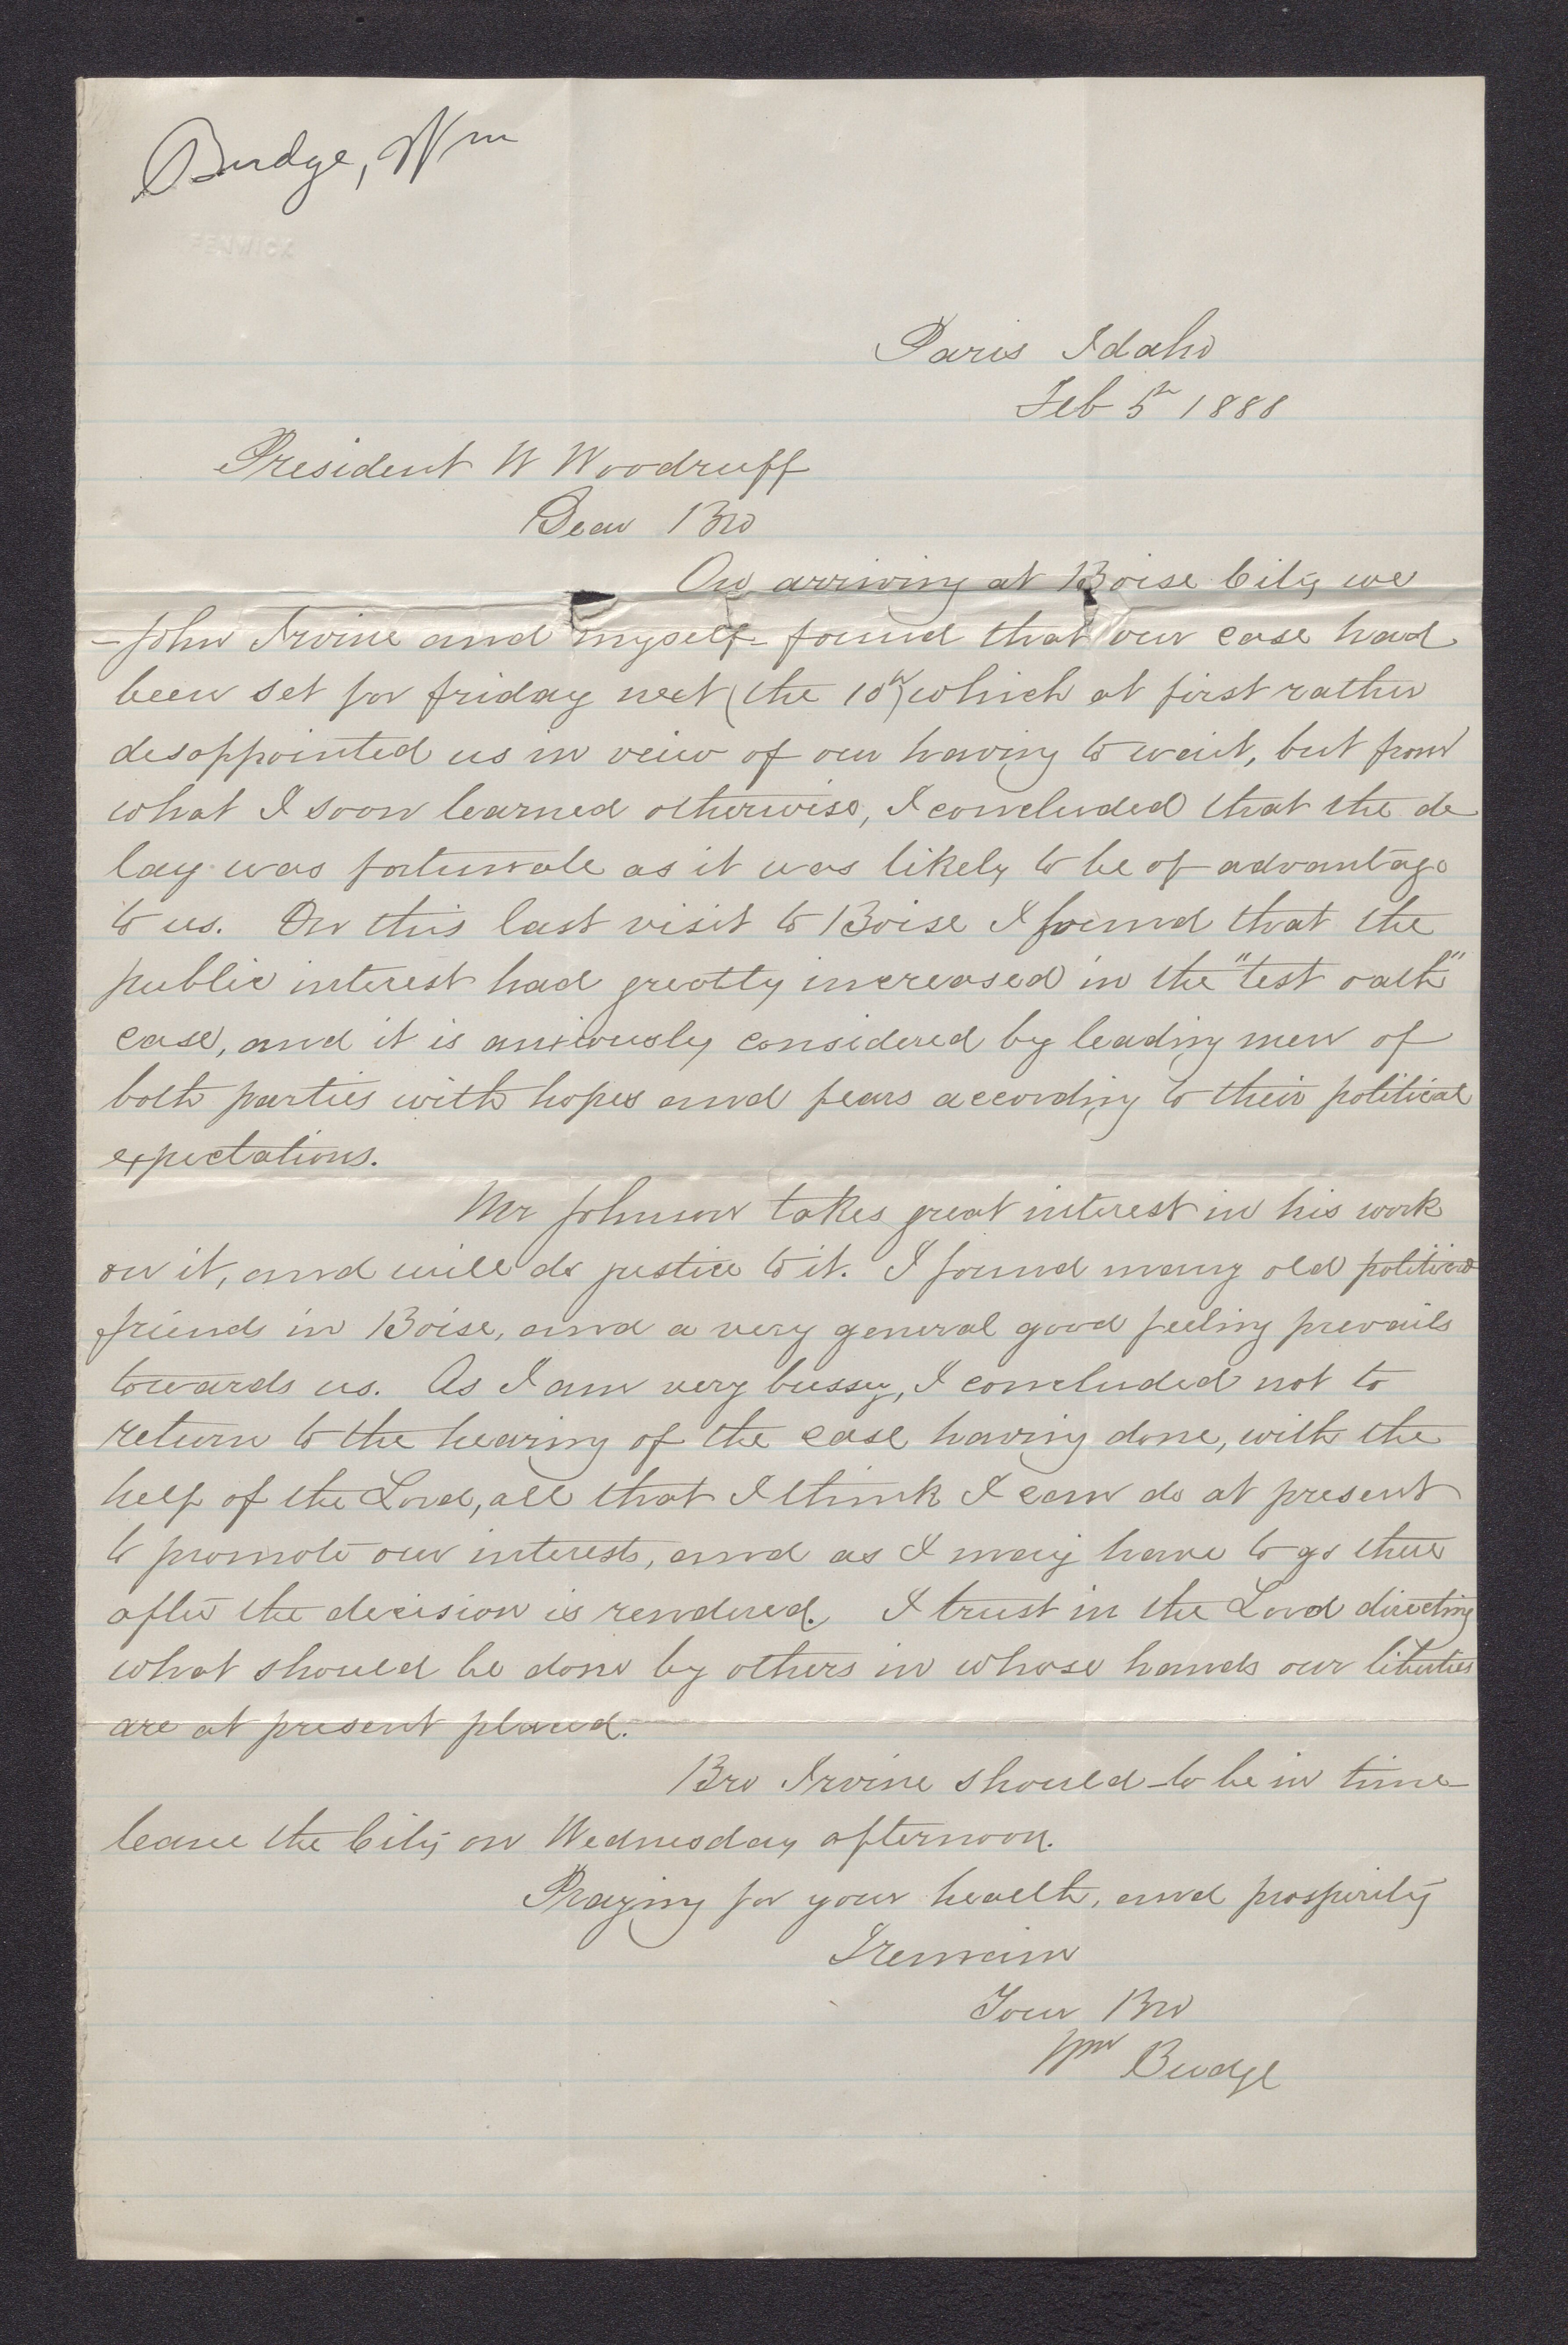 Budge, Wm
Paris Idaho
Feb 5th 1888
President W Woodruff
Dear Bro
On arriving at Boise City we
- John Irvine and myself - found that our case had
been set for friday next (the 10th) which at first rather
desappointed us in veiw of our having to wait, but from
what I soon learned otherwise, I concluded that the de
lay was fortunate as it was likely to be of advantage
to us. On this last visit to Boise I found that the
public interest had greatly increased in the "test oath"
case, and it is anxiously considered by leading men of
both parties with hopes and fears according to their political
expectations.
Mr Johnson takes great interest in his work
on it, and will do justice to it. I found many old political
friends in Boise, and a very general good feeling prevails
towards us. As I am very bussy, I concluded not to
return to the hearing of the case having done, with the
help of the Lord, all that I think I can do at present
to promote our interests, and as I may have to go there
after the decision is rendered. I trust in the Lord directing
what should be done by others in whose hands our liberties
are at present placed.
Bro Irvine should - to be in time -
leave the City on Wednesday afternoon.
Praying for your health, and prosperity
I remain
Your Bro
Wm Budge